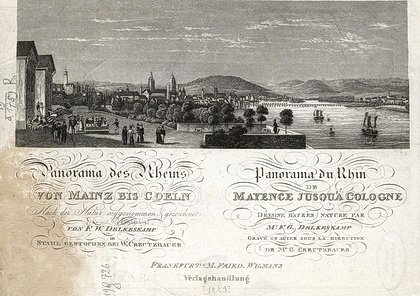 Panorama des Rheins
VON MAINZ BIS COELN
Nach der Natur aufgenommen u. gezeichnet
VON F. W. DELKESKAMP
IN
STAHL GESTOCHEN BEI W. CREUTZBAUER
Panorama du Rhin
DE
MAYENCE JUSQU'À COLOGNE
DESSINÉ D'APRÈS NATURE PAR
Mr. F. G. DELKESKAMP
GRAVÉ EN ACIER SOUS LA DIRECTION
DE Mr. G. CREUTZBAUER
FRANKFURT a. M. FRIED. WILMANS
Verlagshandlung